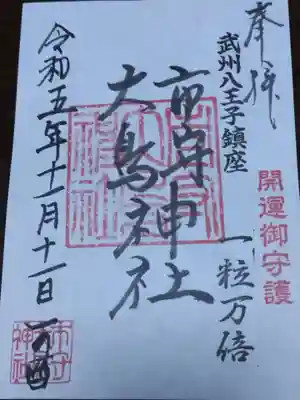 奉拝
武州八王子鎮座
開運御守護
一粒万倍
市守神社
大鳥神社
令和五年十一月十一日 一の酉